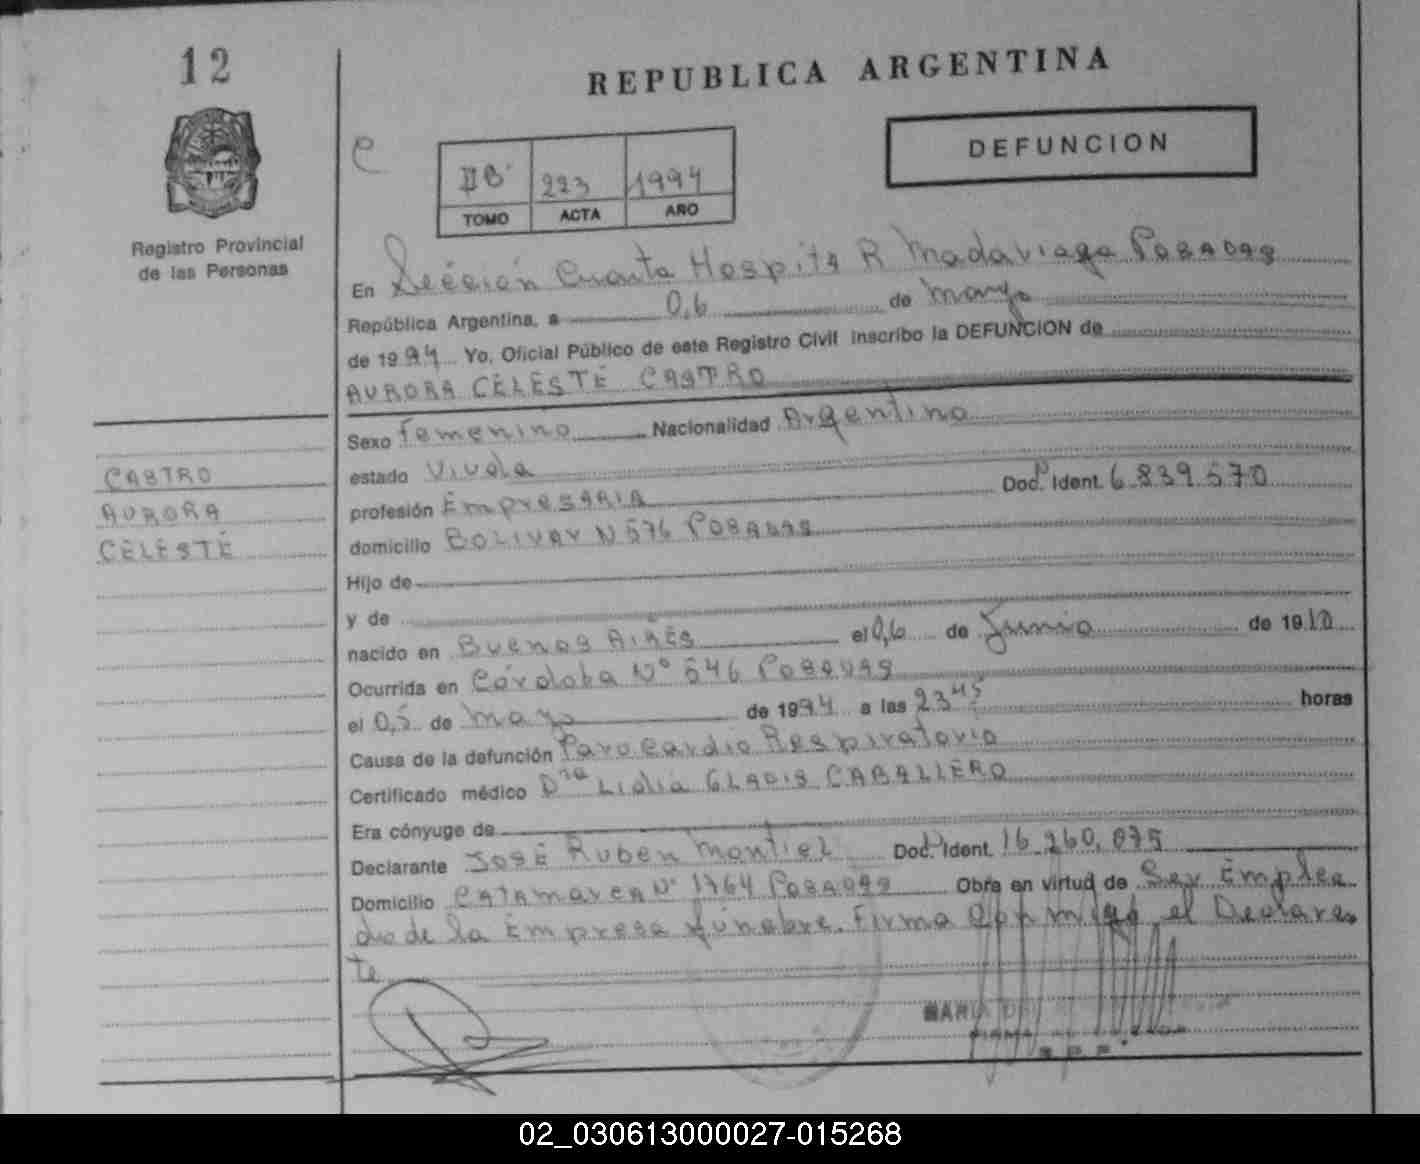 12
REPUBLICA ARGENTINA
DEFUNCION
C
IIB 223 1994
TOMO ACTA AÑO
Registro Provincial
de las Personas
En Sección Cuarta Hospital R Madariaga POSADAS
República Argentina, a 06 de mayo
de 1994 Yo, Oficial Público de este Registro Civil inscribo la DEFUNCION de
AURORA CELESTE CASTRO
Sexo Femenino Nacionalidad Argentina
estado Viuda
profesión EmpresARIA Doc. Ident. 6.839.570
domicilio BOLIVAR N 576 POSADAS
CASTRO
AURORA
CELESTE
Hijo de
y de
nacido en Buenos AIRES el 06 de Junio de 1910
Ocurrida en Córdoba Nº 546 POSADAS
el 05 de mayo de 1994 a las 23 45 horas
Causa de la defunción Paro Cardio Respiratorio
Certificado médico Dra LIDIA GLADIS CABALLERO
Era cónyuge de
Declarante JOSÉ RUBEN MONTIEL Doc. Ident. 16.260.075
Domicilio CATAMARCA Nº 1764 POSADAS Obra en virtud de Ser Emplea
do de la Empresa fúnebre. Firma conmigo el Declaran
te
MARIA
02_030613000027-015268